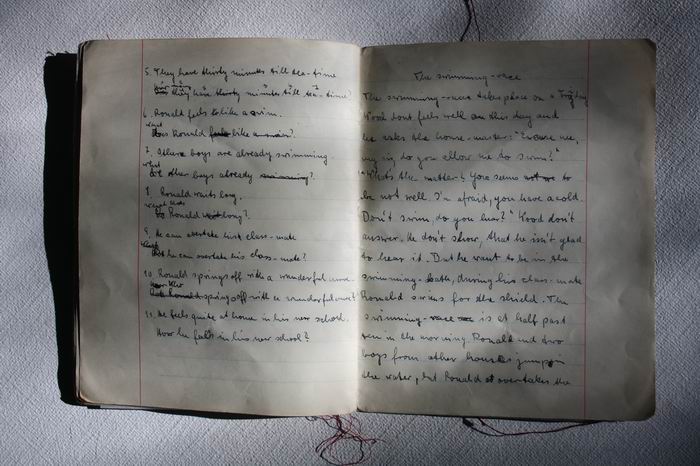 5. They have thirty minutes till tea-time
they have thirty minutes till tea-time?
6. Ronald feels like a swim.
what
does Ronald like a swim?
7. Other boys are already swimming.
what
other boys already swimming?
8. Ronald waits long.
Ronald long?
9. He can overtake his class-mate
he can overtake his class-mate?
10. Ronald springs off with a wonderful
springs off with a wonderful
11. He feels quite at home in his new school.
How he feels in his new school?
The swimming-race
The swimming-race takes place on a Friday
Wood dont feels well on this day and
he asks the house-master: "Excuse me,
my sir, do you allow me to swim?"
"Whats the matter? You seems not to
be not well. I'm afraid, you have a cold.
Don't swim, do you hear?" Wood don't
answer. He don't show, that he isn't glad
to hear it. But he want to be in the
swimming-bath, during his class-mate
Ronald swims for the shield. The
swimming-race is at half past
ten in the morning. Ronald and two
boys from other houses jump in
the water, but Ronald overtakes the